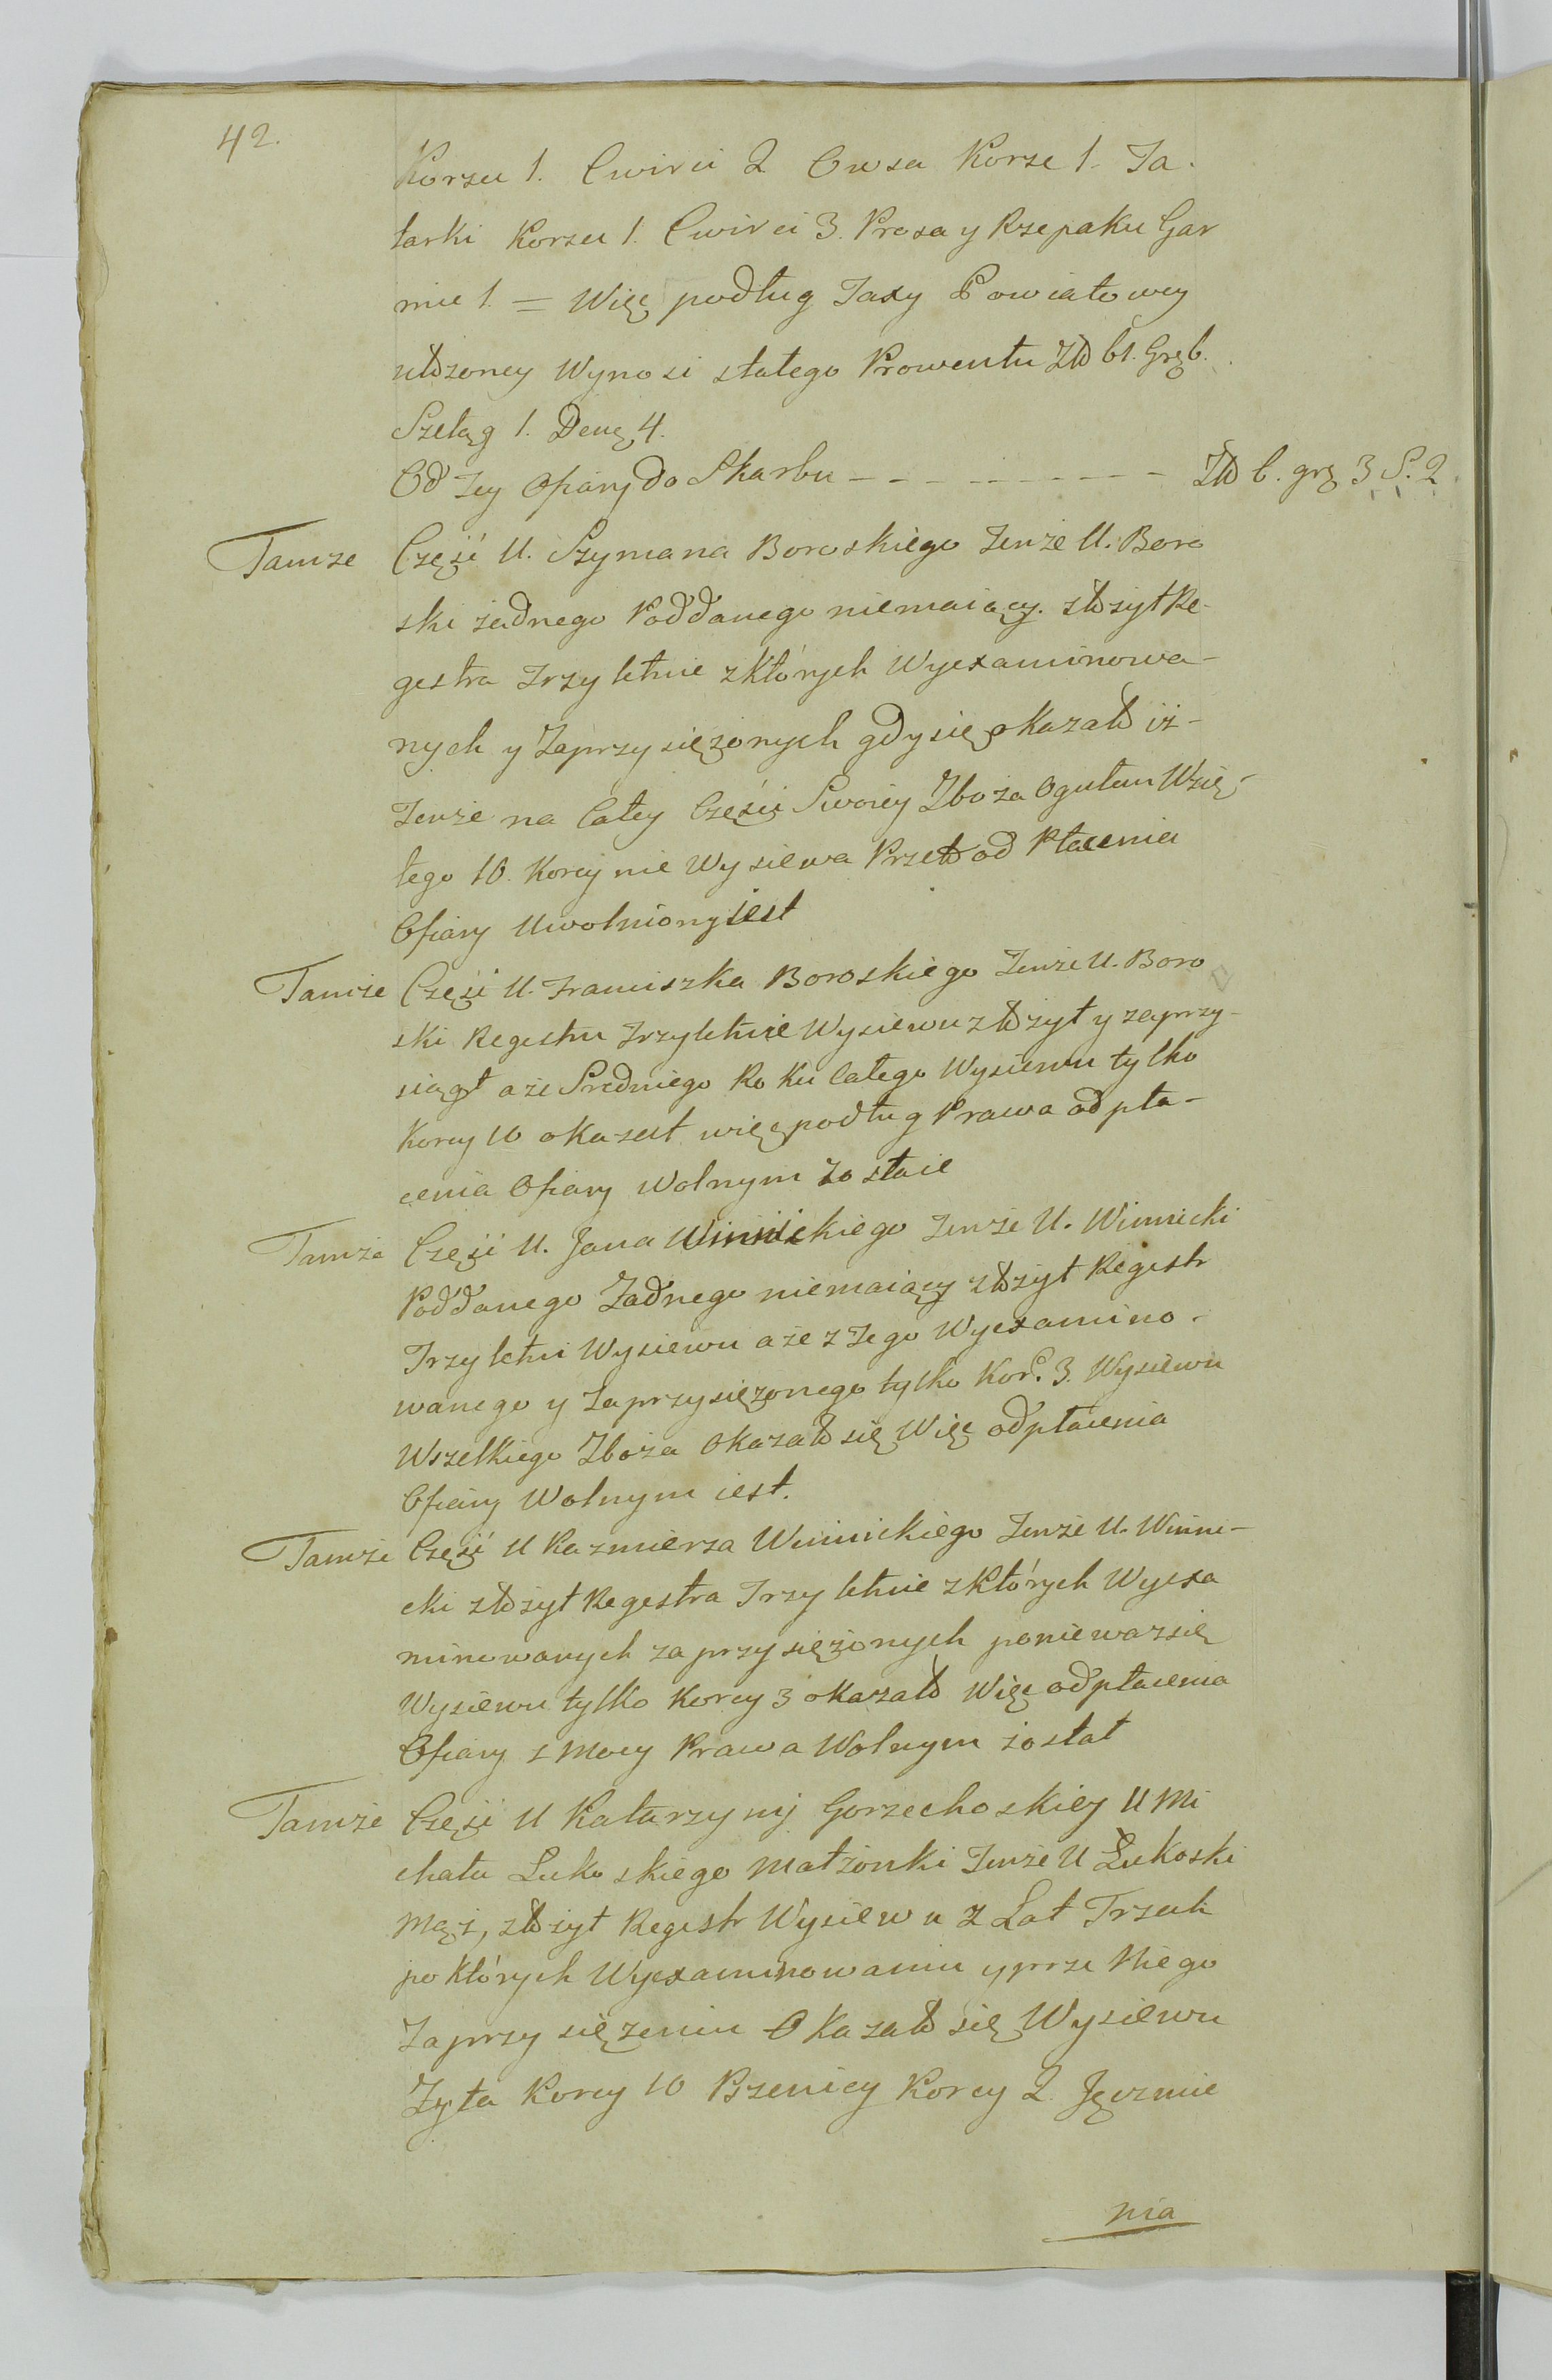 42.
Korzec 1. Cwierci 2 Owsa Korze 1. Ta-
tarki Korzec 1. Cwierci 3. Prosa y Rzepaku Gar
nie 1. = Więc podług Taxy Powiatowey
ułożoney Wynosi stałego Prowentu Złł 61. Grę 6.
Szeląg 1. Denę 4.
Od Tey Ofiary do Skarbu - - - - - - - - - - Złł 6. grę 3 S. 2
Tamze Częśc U. Szymana Boroskiego Tenże U. Boro
ski żadnego Poddanego niemaiący. złożył Re-
gestra Trzyletnie z Których Wyexaminowa-
nych y Zaprzysiężonych gdy się okazało iż-
Tenże na Całey Częsci Swoiey Zboża Ogułem Wzię-
tego 10. Korcy nie Wysiewa Przeto od Płacenia
Ofiary Uwolniony iest
Tamże Częśc U. Franciszka Boroskiego Tenże U. Boro
ski Regestra Trzyletnie Wysiewu złożył y zaprzy-
siągł a że Sredniego Roku całego Wysiewu tylko
Korcy 10 okazał więc podług Prawa od pła-
cenia Ofiary Wolnym Zostaie
Tamże Częśc U. Jana Winnickiego Tenże U. Winnicki
Poddanego Żadnego niemaiący złożył Regestr
Trzyletni Wysiewu a że z Tego Wyexamino-
wanego y Zaprzysiężonego tylko Kor. 3. Wysiewu
Wszelkiego Zboża Okazało się Więc od płacenia
Ofiary Wolnym iest.
Tamże Częśc U Kazmierza Winnickiego Tenże U. Winni-
cki złożył Regestra Trzyletnie z Których Wyexa
minowanych zaprzysiężonych ponieważ się
Wysiewu tylko Korcy 3 okazało Więc od płacenia
Ofiary z Mocy Prawa Wolnym został
Tamże Częśc U Katarzyny Gorzechoskiey U Mi
chała Łukoskiego Małżonki Tenże U Łukoski
Mąż, złożył Regestr Wysiewu z Lat Trzech
po Których Wyexaminowaniu y prze Niego
Zaprzysiężeniu Okazało się Wysiewu
Żyta Korcy 10 Pszenicy Korcy 2 Jęczmie
nia